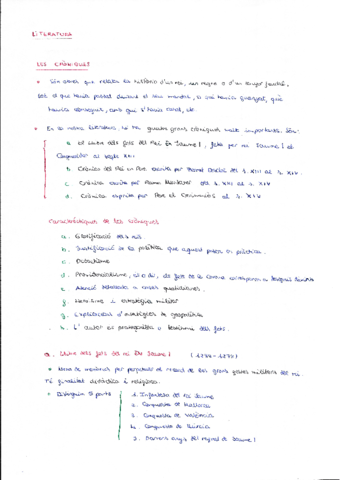 LITERATURA
LES CRÒNIQUES
• Són obres que relaten la història d'un rei, un regne o d'un senyor feudal,
tot el que havia passat durant el seu mandat, si s'havia guanyat, què
havia aconseguit, amb qui s'havia casat, etc.
• En la nostra literatura, hi ha quatre grans cròniques molt importants. Són:
a. El llibre dels fets del rei En Jaume I, feta per rei Jaume I el
Conqueridor al segle XIII
b. Crònica del Rei en Pere escrita per Bernat Desclot del s. XIII al s. XIV.
c. Crònica escrita per Ramon Muntaner del s. XIII al s. XIV
d. Crònica escrita per Pere el Cerimoniós al s. XIV.
Característiques de les cròniques
a. Glorificació dels reis
b. Justificació de la política que aquest posen en pràctica.
c. Didactisme
d. Providencialisme, és a dir, els fets de la corona
e. Atenció a coses quotidianes.
f. Heroisme i estratègia militar
g. Explicacions d'estratègies de geopolítica
h. L'autor és protagonista o testimoni dels fets.
a. Llibre dels fets del rei En Jaume I (1244-1274)
• Obra de memòries per perpetuar el record de les grans fetes militars del rei.
Té finalitat didàctica i religiosa.
• Distingim 5 parts
1. Infantesa del rei Jaume
2. Conquesta de Mallorca
3. Conquesta de València
4. Conquesta de Múrcia
5. Darrers anys del regnat de Jaume I